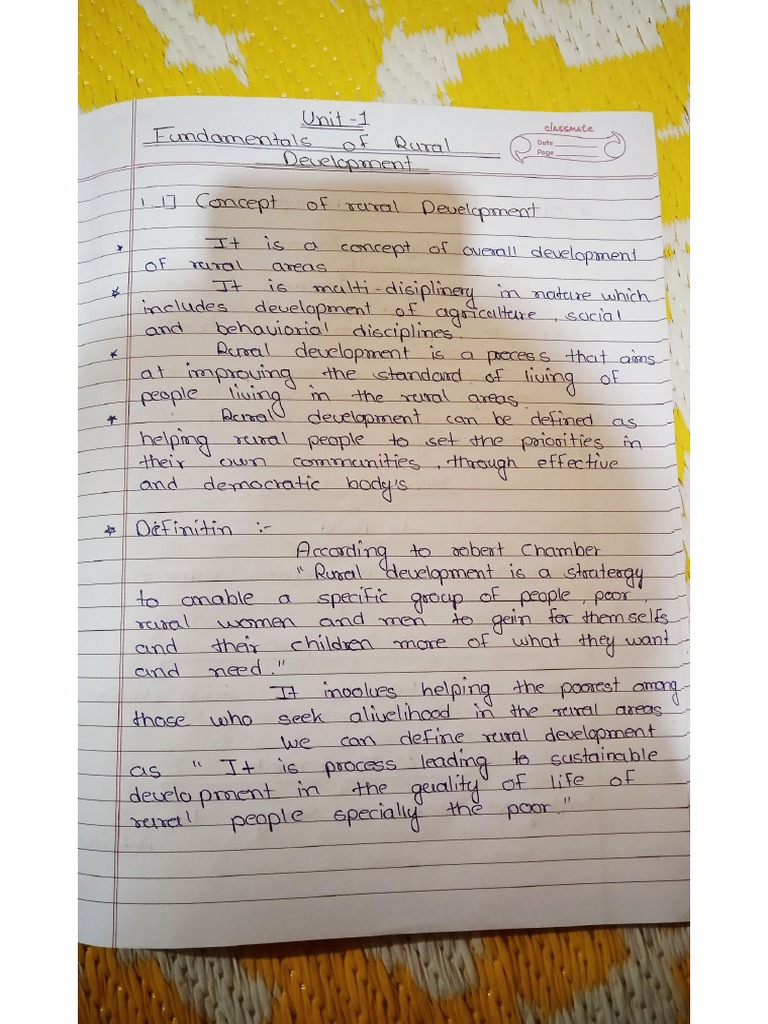 Unit-1
Fundamentals of Rural
Development
classmate
Date
Page
1.1] Concept of rural Development
* It is a concept of overall development
of rural areas.
* It is multi-disiplinery in nature which
includes development of agriculture, social
and behaviorial disciplines.
* Rural development is a process that aims
at improving the standard of living of
people living in the rural areas.
* Rural development can be defined as
helping rural people to set the priorities in
their own communities, through effective
and democratic body's.
* Definitin :-
According to robert Chamber
"Rural development is a stratergy
to enable a specific group of people, poor,
rural women and men to gein for themselfs
and their children more of what they want
and need."
It inoolves helping the poorest among
those who seek alivelihood in the rural areas
we can define rural development
as "It is process leading to sustainable
development in the geuality of life of
rural people specially the poor."